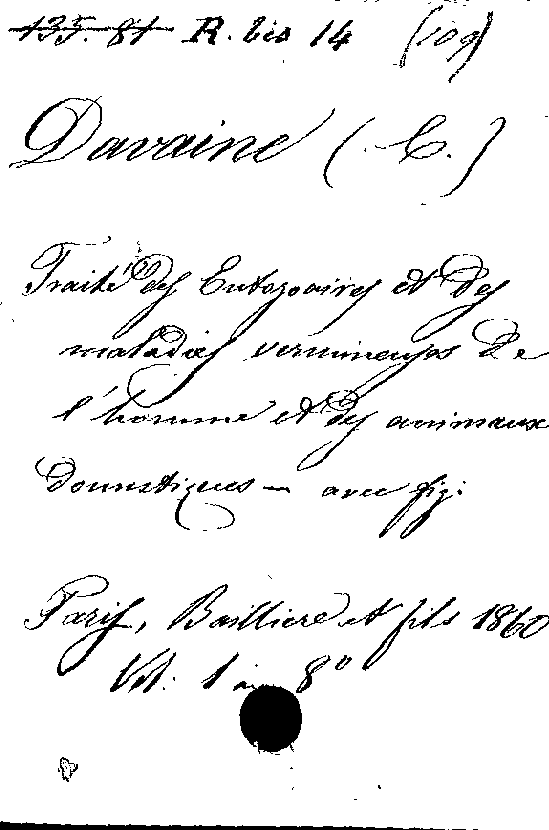 135. 81 R. bis 14 (109)
Davaine (C.)
Traité des Entozoaires et des
maladies vermineuses de
l'homme et des animaux
domestiques — avec fig:
Paris, Baillière et fils 1860
Vol: 1 in 8º